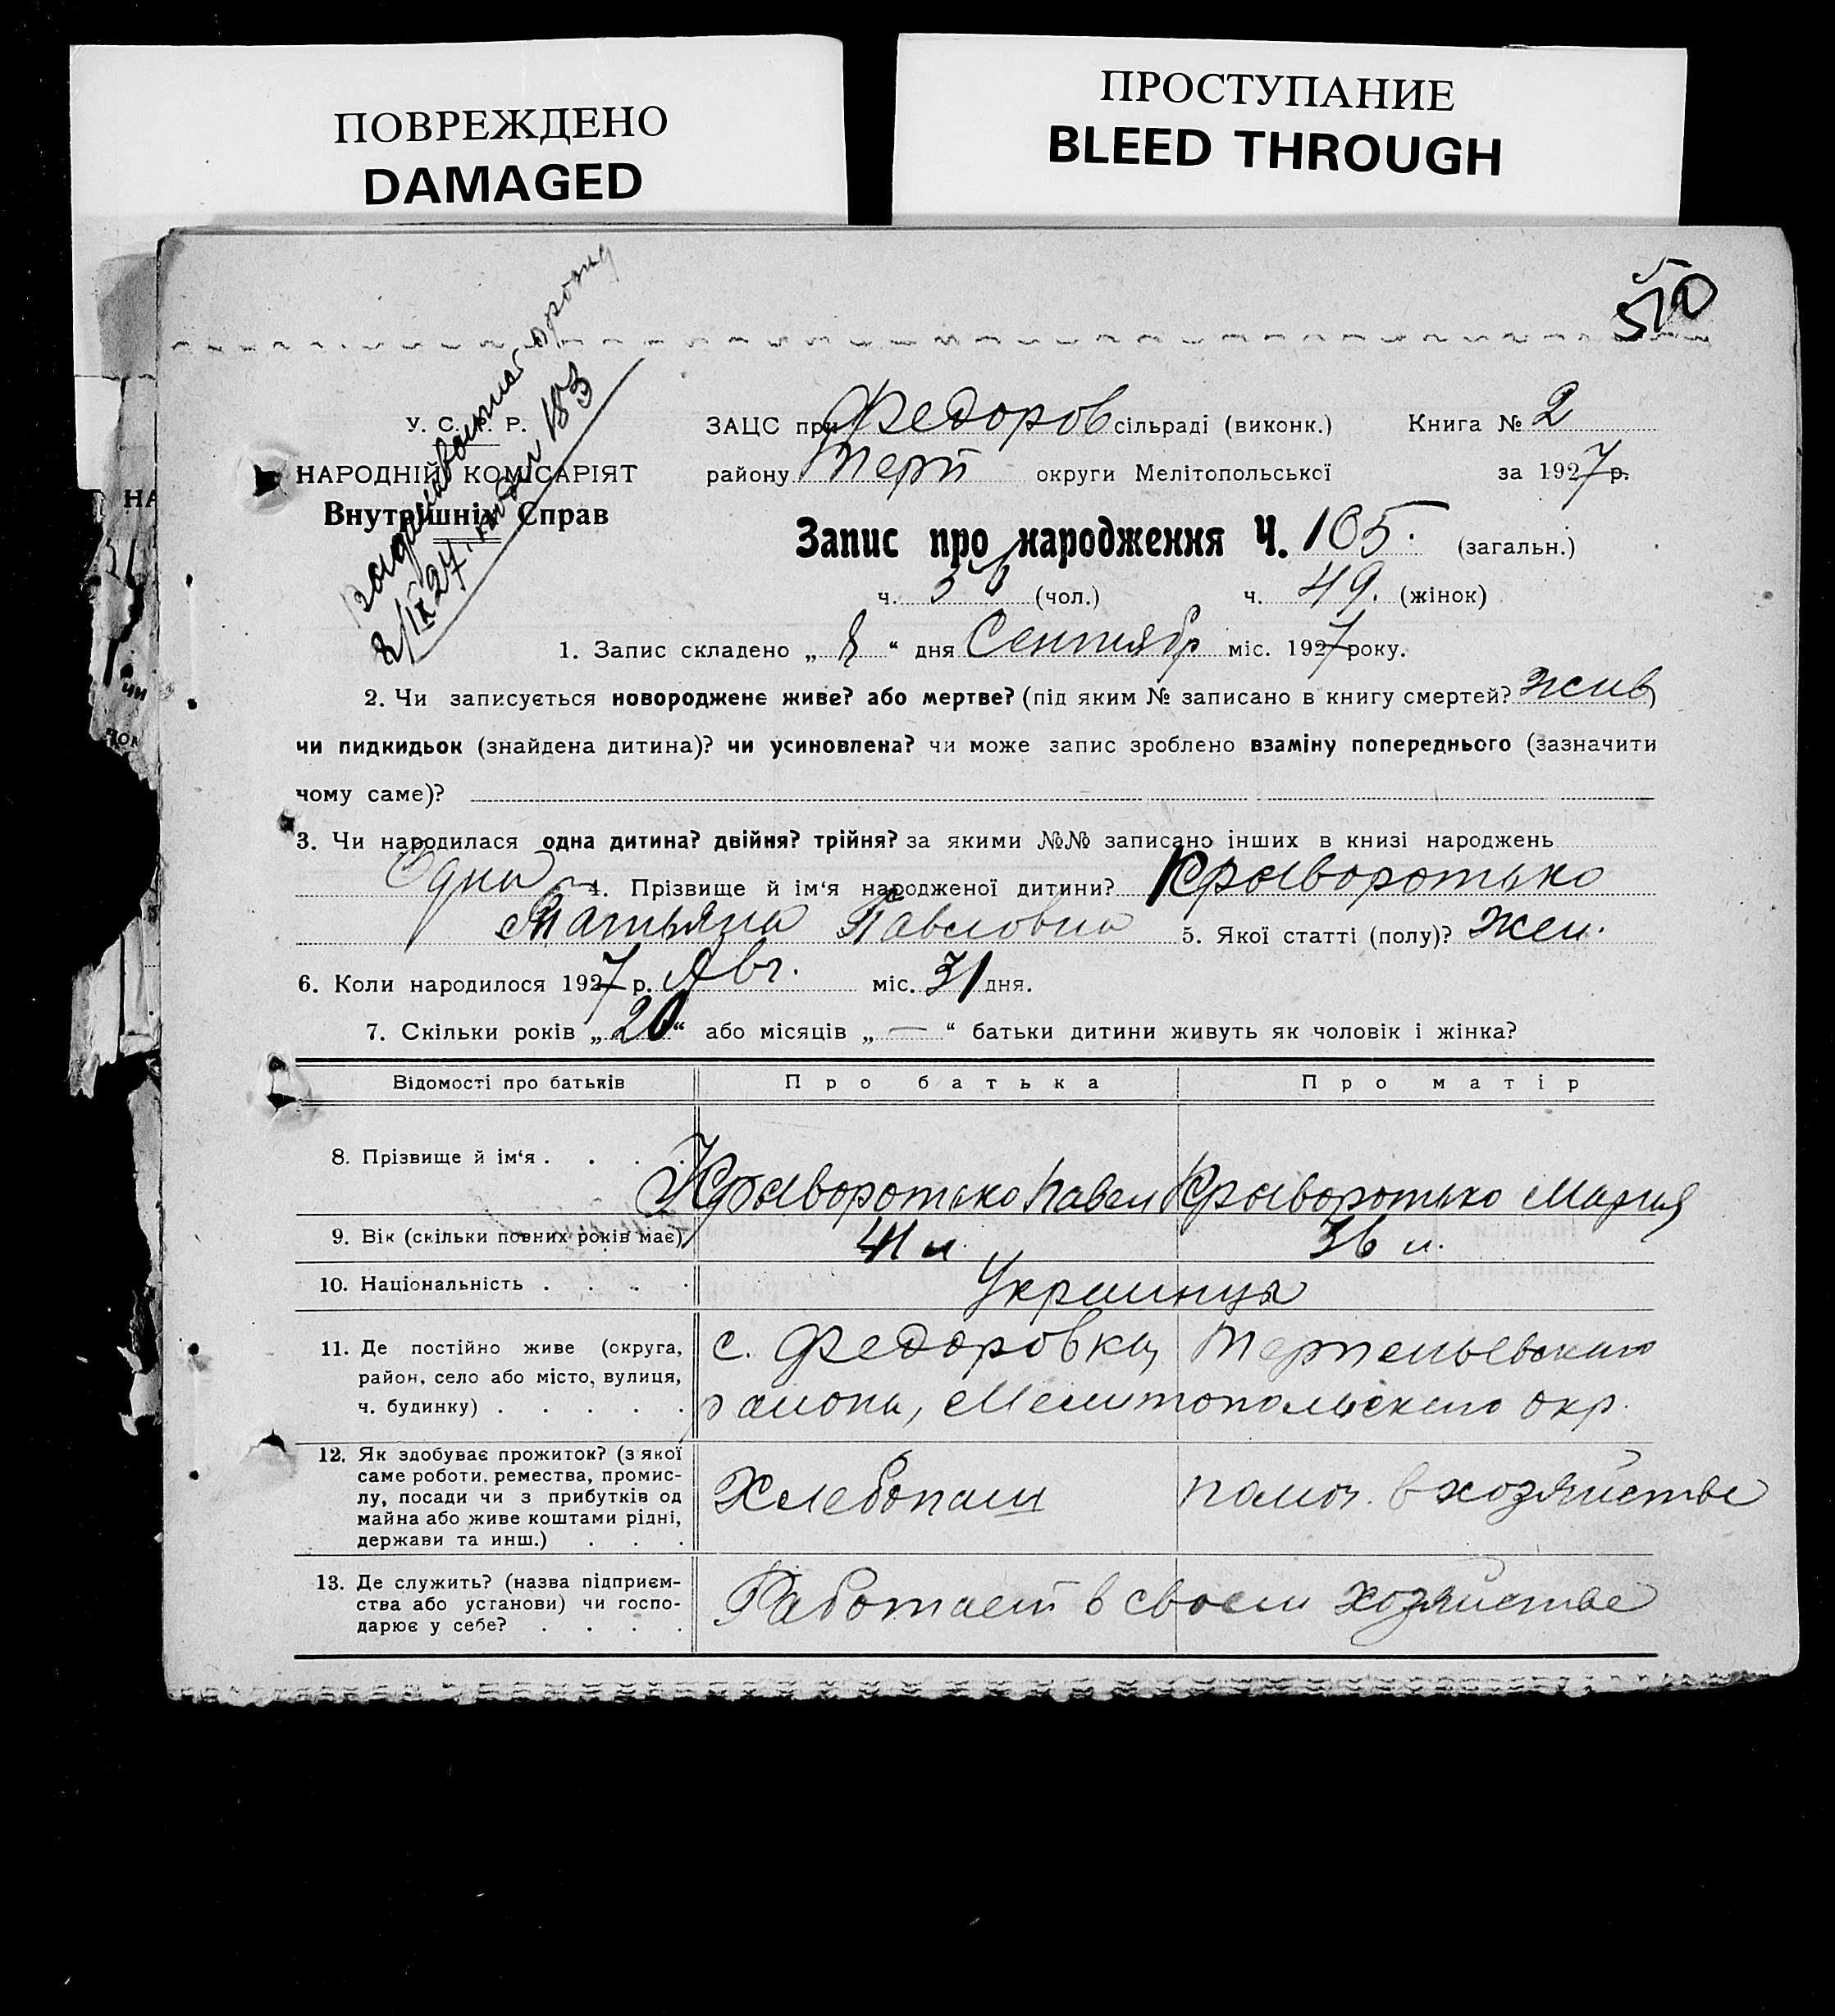 ПОВРЕЖДЕНО
DAMAGED
ПРОСТУПАНИЕ
BLEED THROUGH
510
У. С. Р. Р.
НАРОДНІЙ КОМІСАРІЯТ
Внутрішніх Справ
8/IX 27 183
ЗАЦС при Федоров сільраді (виконк.) Книга № 2
району Терп округи Мелітопольської за 1927 р.
Запис про народження Ч. 105. (загальн.)
ч. 56 (чол.) ч. 49. (жінок)
1. Запис складено „ 8 “ дня Сентябр міс. 1927 року.
2. Чи записується новороджене живе? або мертве? (під яким № записано в книгу смертей? жив)
чи пидкидьок (знайдена дитина)? чи усиновлена? чи може запис зроблено взаміну попереднього (зазначити
чому саме)?
3. Чи народилася одна дитина? двійня? трійня? за якими №№ записано інших в книзі народжень
Одна 4. Прізвище й ім‘я народженої дитини? Крыворотько
Татьяна Павловна 5. Якої статті (полу)? Жен.
6. Коли народилося 1927 р. Авг. міс. 31 дня.
7. Скільки років „ 20 “ або місяців „ — “ батьки дитини живуть як чоловік і жінка?
Відомості про батьків Про батька Про матір
8. Прізвище й ім‘я . . . . Крыворотько Павел Крыворотько Мария
9. Вік (скільки повних років має) 41 л. 36 л.
10. Національність . . . . Украинцы
11. Де постійно живе (округа,
район, село або місто, вулиця,
ч. будинку) . . . . .
с. Федоровка, Терпеньевского
района, Мелитопольского окр.
12. Як здобуває прожиток? (з якої
саме роботи, ремества, промис-
лу, посади чи з прибутків од
майна або живе коштами рідні,
держави та инш.) . . .
Хлебопаш помог. в хозяйстве
13. Де служить? (назва підприєм-
ства або установи) чи госпо-
дарює у себе? . . . .
Работает в своем хозяйстве